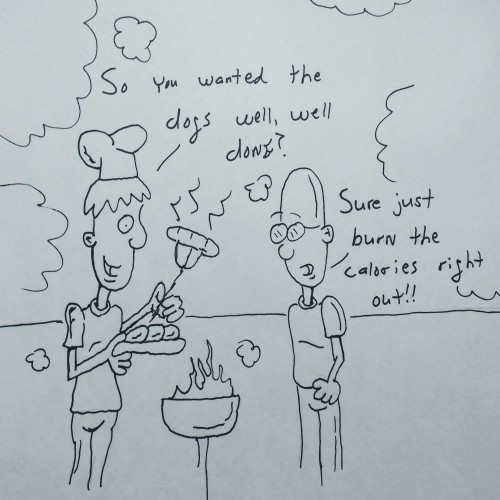 So you wanted the
dogs well, well
done?
Sure just
burn the
calories right
out!!